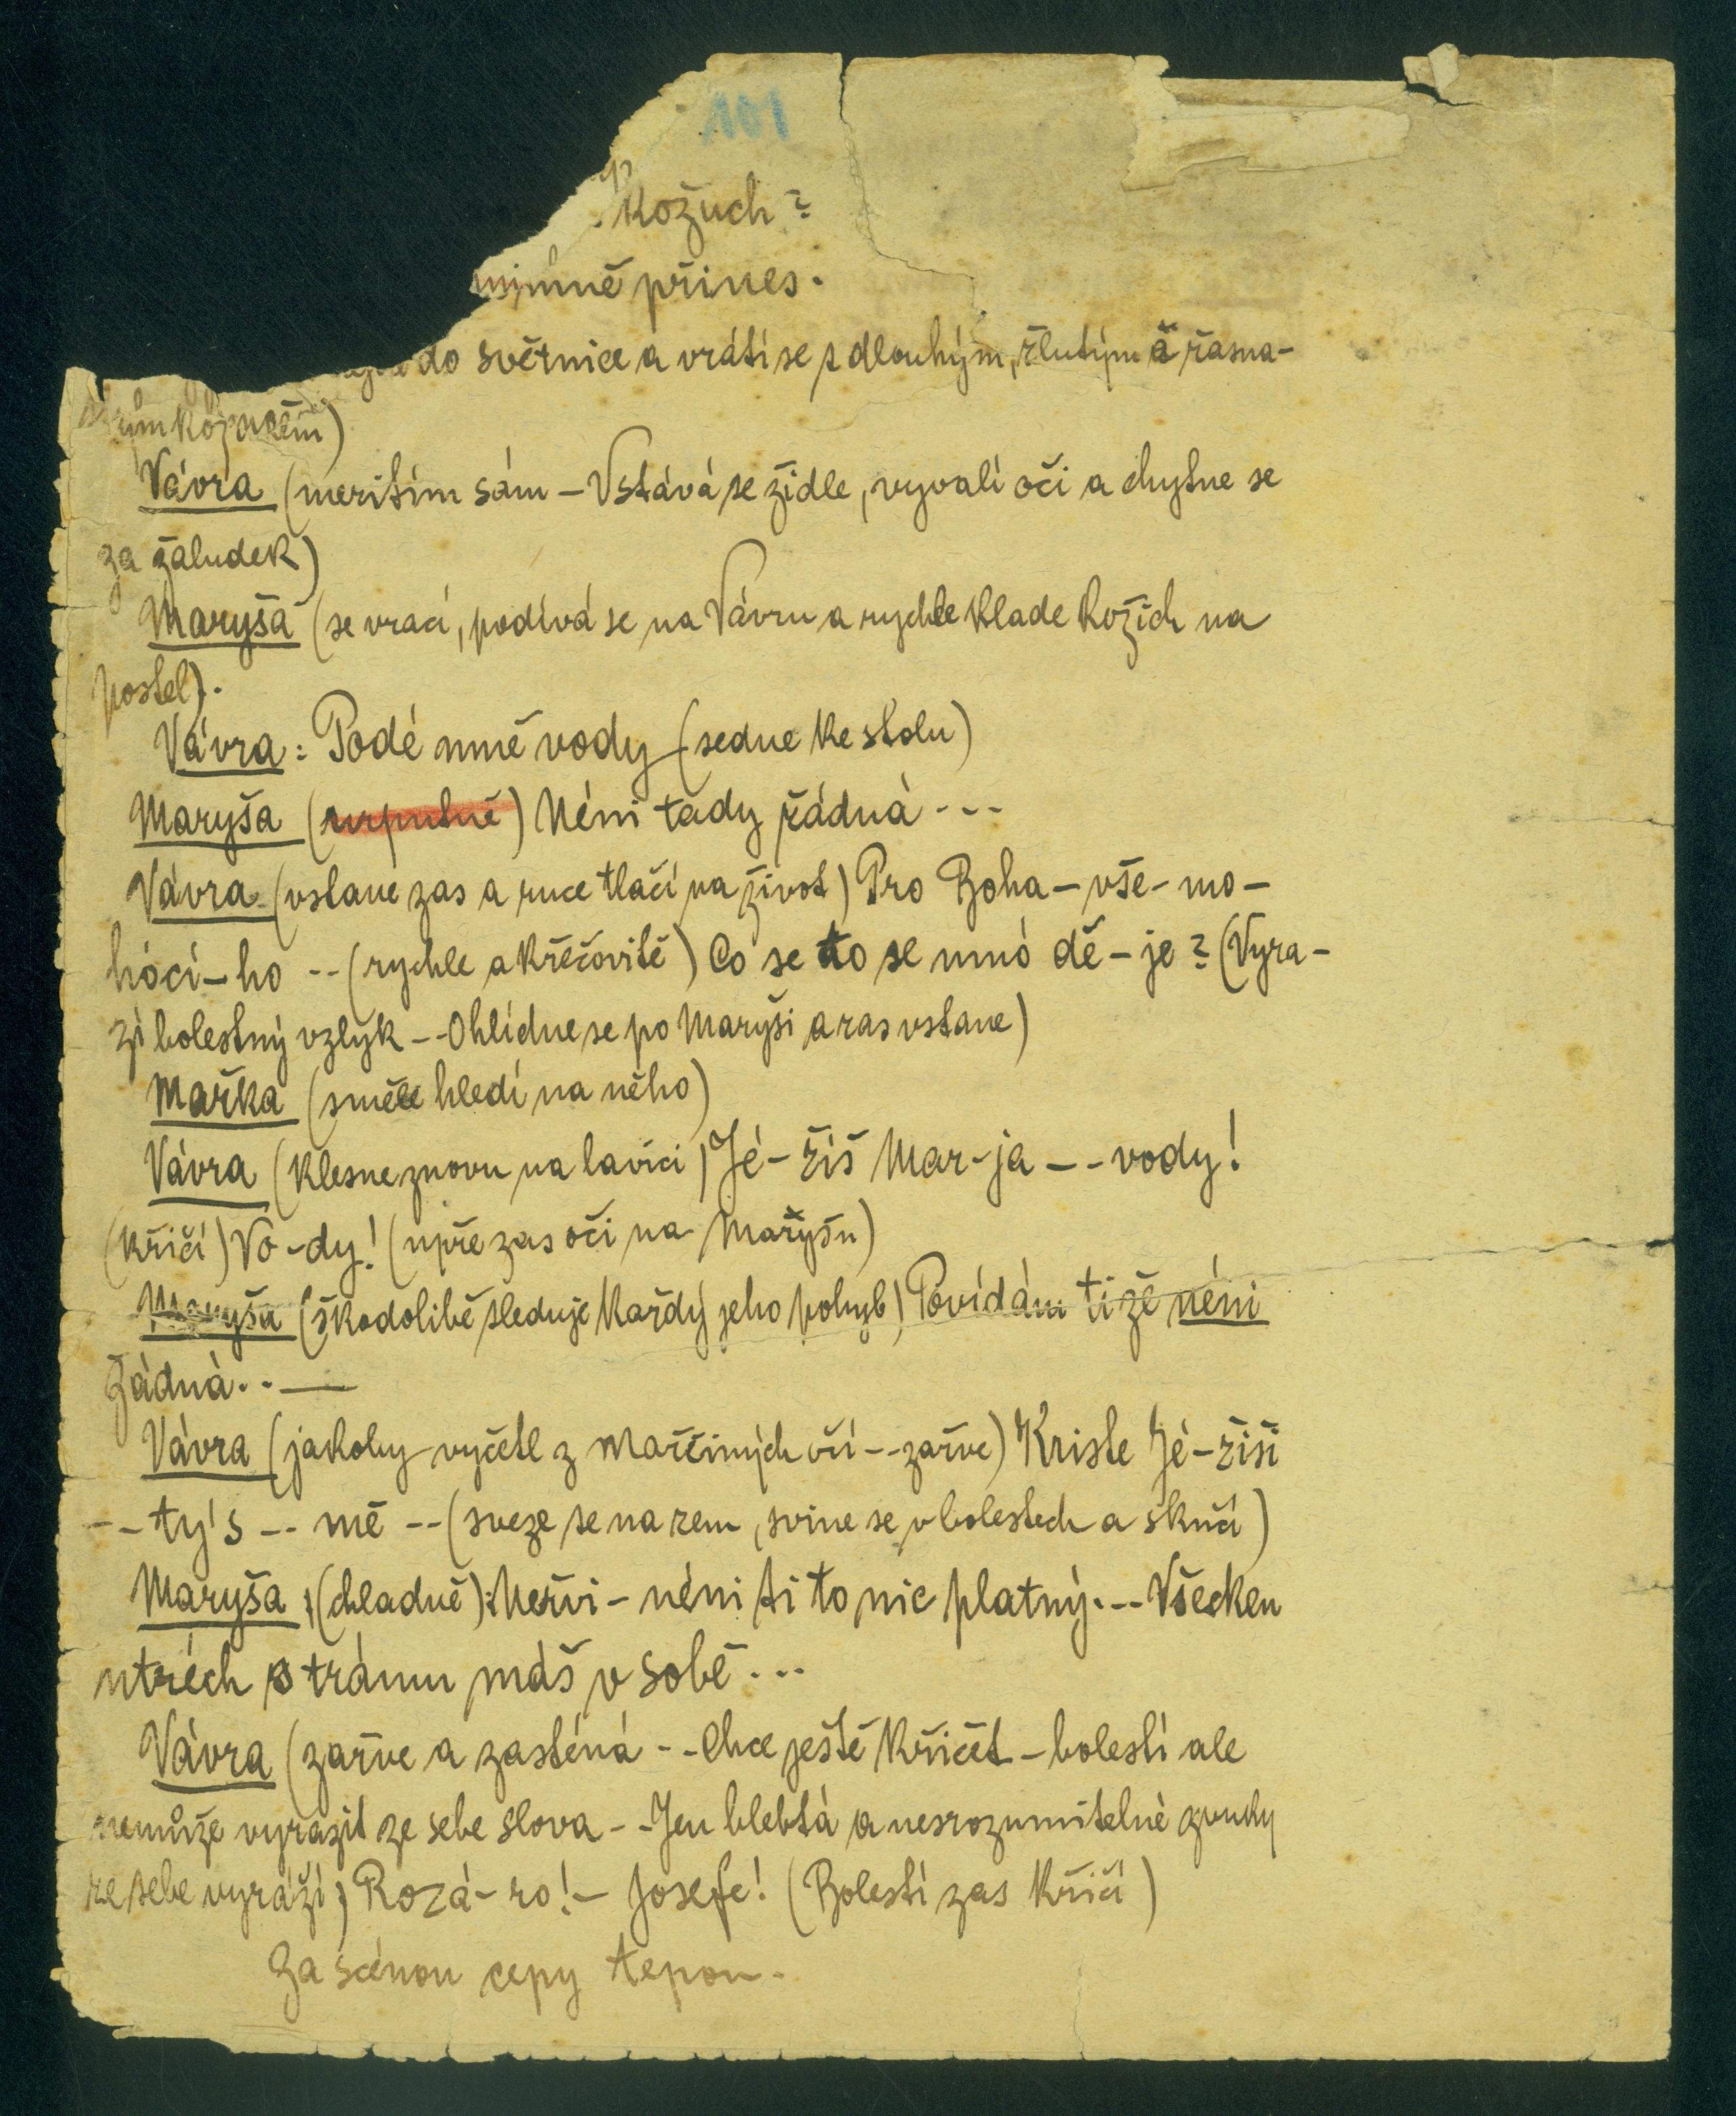 101
Kožuch?
mně přines.
do světnice a vrátí se s dlouhým, žlutým a řasna-
kožuchem)
Vávra (meritím sám – Vstává se židle, vyvalí oči a chytne se
za žaludek)
Maryša (se vrací, podívá se na Vávru a rychle klade kožich na
postel).
Vávra: Podé mně vody (sedne ke stolu)
Maryša ( ) Néni tady žádná ---
Vávra (vstane zas a ruce tlačí na život) Pro Boha – vše-mo-
hócí-ho -- (rychle a křečovitě) Co se to se mnó dě-je? (Vyra-
zí bolestný vzlyk -- Ohlídne se po Maryši a zas vstane)
Mařka (směle hledí na něho)
Vávra (klesne znovu na lavici) Jé-žiš Mar-ja -- vody!
(křičí) Vo-dy! (upře zas oči na Maryšu)
Maryša (škodolibě sleduje každý jeho pohyb) Povídám ti že néni
žádná.. —
Vávra (jakoby vyčetl z Mařčiných očí -- zařve) Kriste Jé-žiši
-- tý's -- mě -- (sveze se na zem, svine se v bolestech a skučí)
Maryša: (chladně): Neřvi – néni ti to nic platný... Všecken
utréch s trámu máš v sobě...
Vávra (zařve a zasténá -- Chce ještě křičet – bolestí ale
nemůže vyrazit ze sebe slova -- Jen blebtá a nesrozumitelné zvuky
ze sebe vyráží) Rozá-ro! – Josefe! (Bolestí zas křičí)
Za scénou cepy tepou.